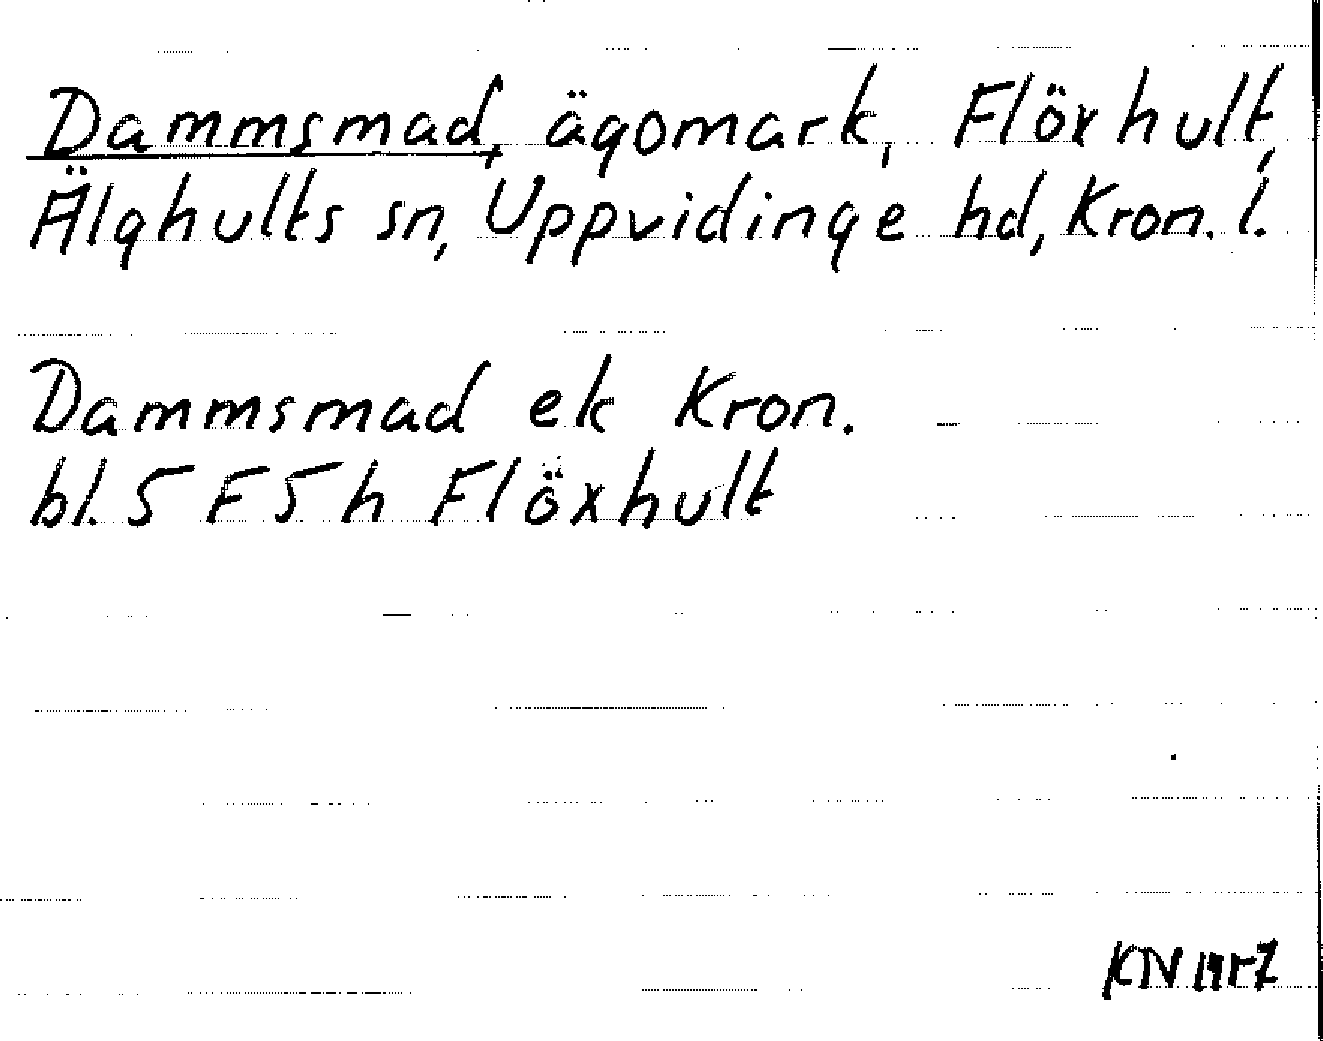 Dammsmad, ägomark, Flöxhult,
Älghults sn, Uppvidinge hd, Kron. l.
Dammsmad ek Kron.
bl. 5 F 5 h Flöxhult
KN 1957